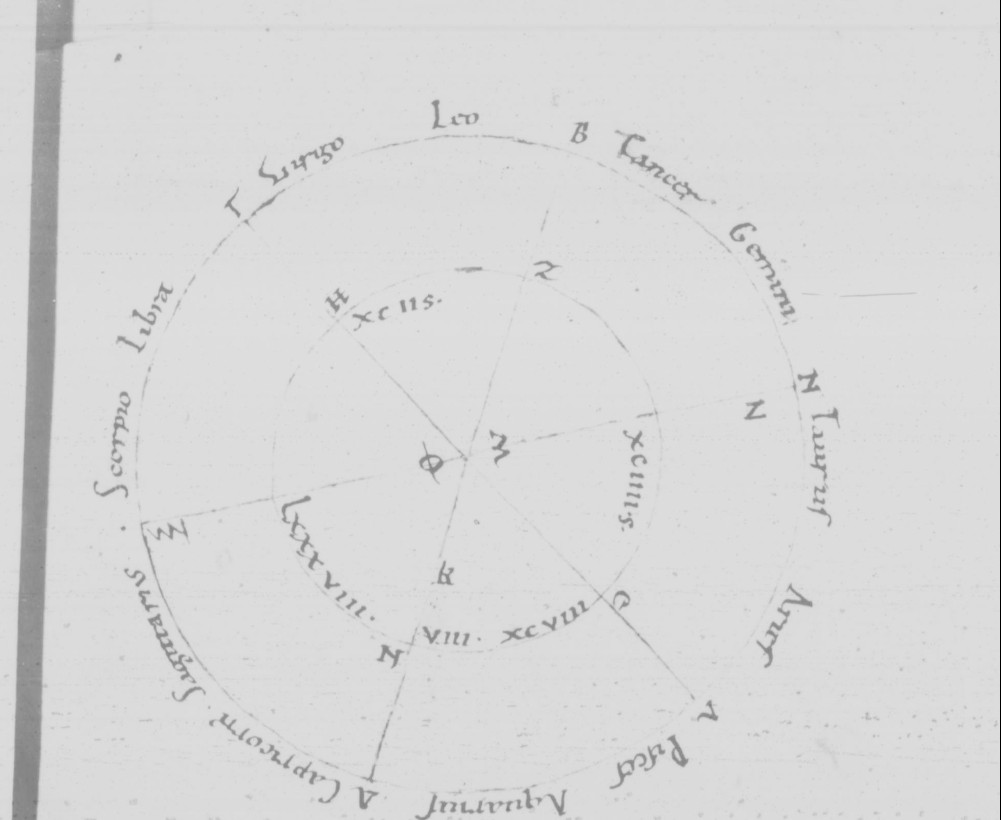 Leo
B
Cancer
Gemini
N
N
Tauruſ
Arieſ
Λ
Piſceſ
Aquariuſ
Δ
Capricorn'
Sagittarius
Ξ
Scorpio
Libra
Γ
Virgo
Z
H
xc iis.
xciiiis.
Θ
xcviii
viii.
lxxxviii.
K
M
Φ